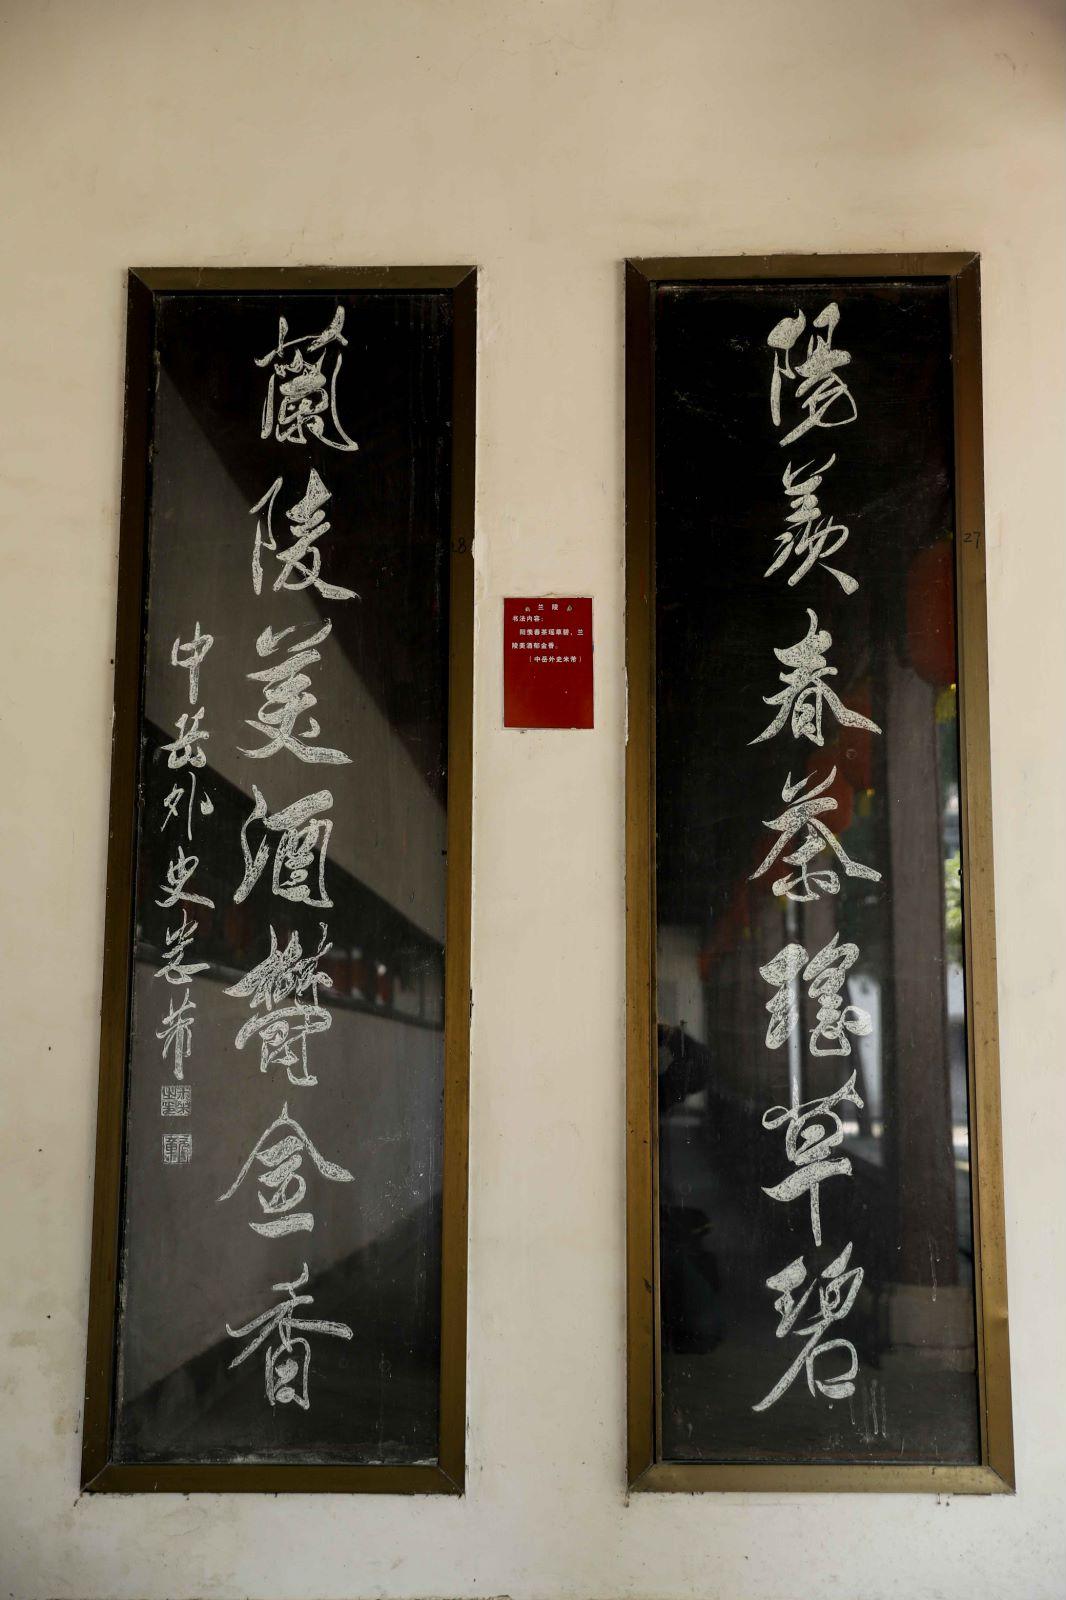 陽羨春茶瑤草碧
蘭陵美酒鬱金香
中岳外史米芾
兰 陵
书法内容：
阳羡春茶瑶草碧，兰
陵美酒郁金香。
（中岳外史米芾）
27